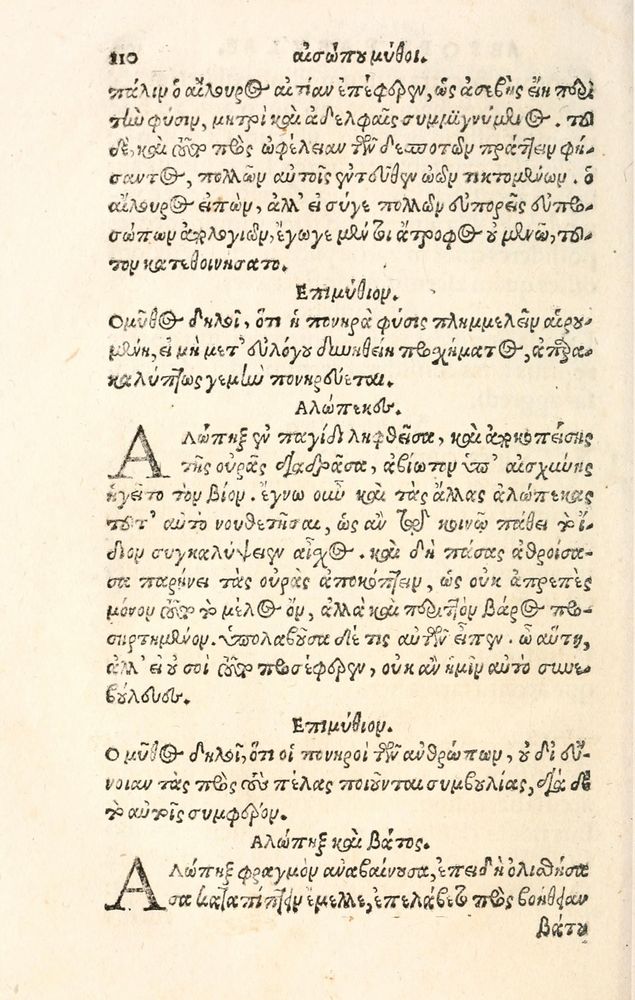 110 αἰσώπου μύθοι.
πάλιν ὁ αἴλουρος αἰτίαν ἐπέφερεν, ὡς ἀσεβὴς εἴη περὶ
τὴν φύσιν, μητρὶ καὶ ἀδελφαῖς συμμιγνύμενος. τοῦ
δὲ, καὶ τοῦτο πρὸς ὠφέλειαν τῶν δεσποτῶν πράττειν φή-
σαντος, πολλῶν αὐτοῖς ἐντεῦθεν ὠῶν τικτομένων. ὁ
αἴλουρος εἰπὼν, ἀλλ' εἰ σύγε πολλῶν εὐπορεῖς εὐπρο-
σώπων ἀπολογιῶν, ἔγωγε μέντοι ἄτροφος οὐ μενῶ, τοῦ-
τον κατεθοινήσατο.
Επιμύθιον.
Ο μῦθος δηλοῖ, ὅτι ἡ πονηρὰ φύσις πλημμελεῖν αἱρου-
μένη, εἰ μὴ μετ' εὐλόγου δυνηθείη προσχήματος, ἀπαρα-
καλύπτως γε μὴν πονηρεύεται.
Αλώπεκος.
Αλώπηξ ἐν παγίδι ληφθεῖσα, καὶ ἀποκοπείσης
τῆς οὐρᾶς διαδρᾶσα, ἀβίωτον ὑπ' αἰσχύνης
ἡγεῖτο τὸν βίον. ἔγνω οὖν καὶ τὰς ἄλλας ἀλώπεκας
τοῦτ' αὐτὸ νουθετῆσαι, ὡς ἂν τῷ κοινῷ πάθει τὸ ἴ-
διον συγκαλύψειεν αἶσχος. καὶ δὴ πάσας ἀθροίσα-
σα παρῄνει τὰς οὐρὰς ἀποκόπτειν, ὡς οὐκ ἀπρεπὲς
μόνον τοῦτο τὸ μέλος ὂν, ἀλλὰ καὶ περιττὸν βάρος προ-
σηρτημένον. ὑπολαβοῦσα δέ τις αὐτῶν εἶπεν. ὦ αὕτη,
ἀλλ' εἰ οὐ σοὶ τοῦτο προσέφερεν, οὐκ ἂν ἡμῖν αὐτὸ συνε-
βούλευες.
Επιμύθιον.
Ο μῦθος δηλοῖ, ὅτι οἱ πονηροὶ τῶν ἀνθρώπων, οὐ δι' εὔ-
νοιαν τὰς πρὸς τοὺς πέλας ποιοῦνται συμβουλίας, διὰ δὲ
τὸ αὐτοῖς συμφέρον.
Αλώπηξ καὶ Βάτος.
Αλώπηξ φραγμὸν ἀναβαίνουσα, ἐπειδὴ ὀλισθήσα
σα καταπίπτειν ἔμελλε, ἐπελάβετο πρὸς βοήθειαν
βάτου